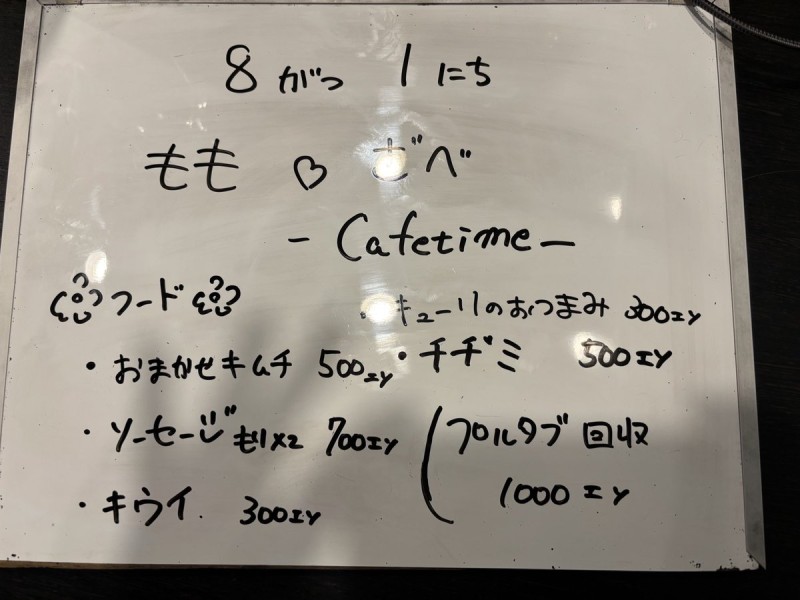 8がつ 1にち
もも ♡ ぜべ
- Cafetime -
フード
・キューリのおつまみ 300エン
・おまかせキムチ 500エン
・チヂミ 500エン
・ソーセージもり×2 700エン
・キウイ 300エン
プルタブ回収
1000エン